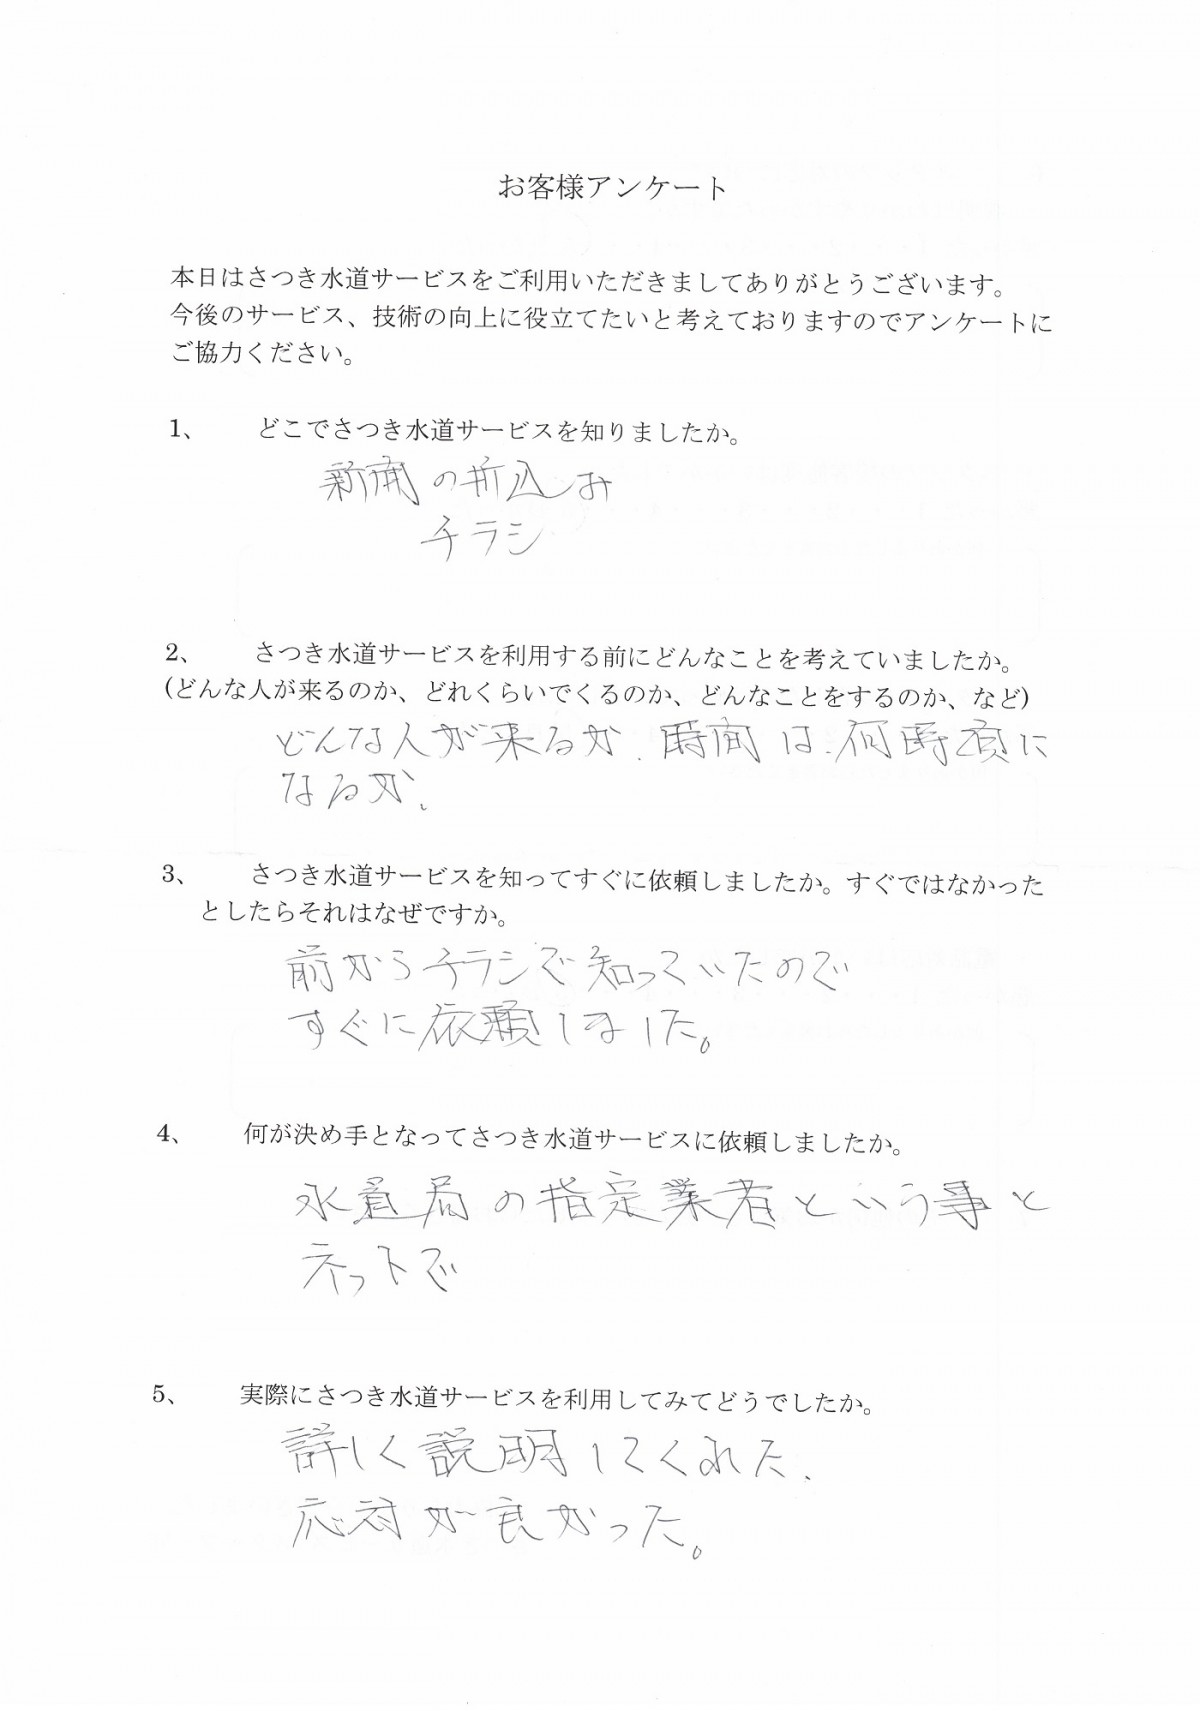 お客様アンケート
本日はさつき水道サービスをご利用いただきましてありがとうございます。
今後のサービス、技術の向上に役立てたいと考えておりますのでアンケートに
ご協力ください。
1、 どこでさつき水道サービスを知りましたか。
新聞の折込み
チラシ
2、 さつき水道サービスを利用する前にどんなことを考えていましたか。
(どんな人が来るのか、どれくらいでくるのか、どんなことをするのか、など)
どんな人が来るか、時間は、何時頃に
なるか、
3、 さつき水道サービスを知ってすぐに依頼しましたか。すぐではなかった
としたらそれはなぜですか。
前からチラシで知っていたので
すぐに依頼しました。
4、 何が決め手となってさつき水道サービスに依頼しましたか。
水道局の指定業者という事と
ネットで
5、 実際にさつき水道サービスを利用してみてどうでしたか。
詳しく説明してくれた、
応対が良かった。